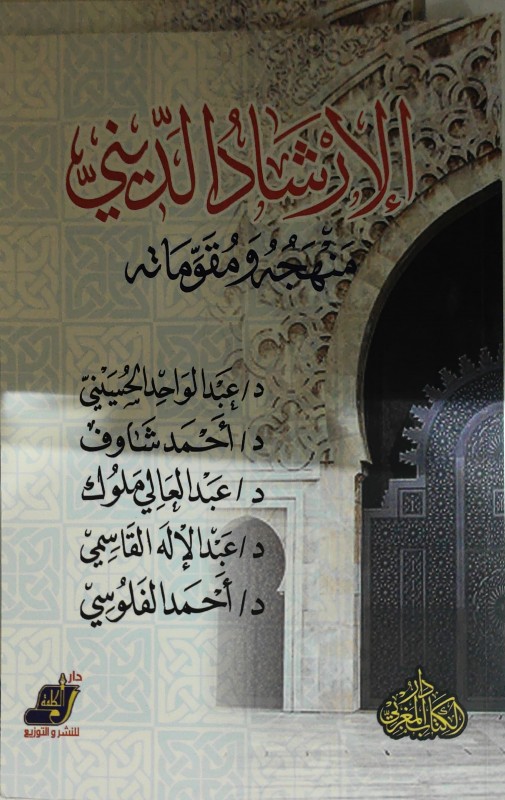 الإرشاد الدّينيّ
مَنْهَجُهُ وَمُقَوّمَاته
د/ عبد الواحد الحُسَينيّ
د/ أحمد شاوف
د/ عبد العالي ملوك
د/ عبد الإله القاسمي
د/ أحمد الفلوسي
دار
الكلمة
للنشر والتوزيع
دار
الكتاب المغربي